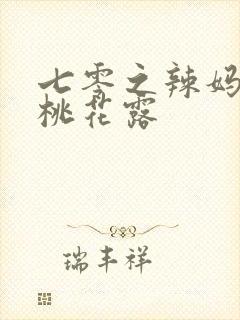 七零之辣妈
桃花露
瑞丰祥